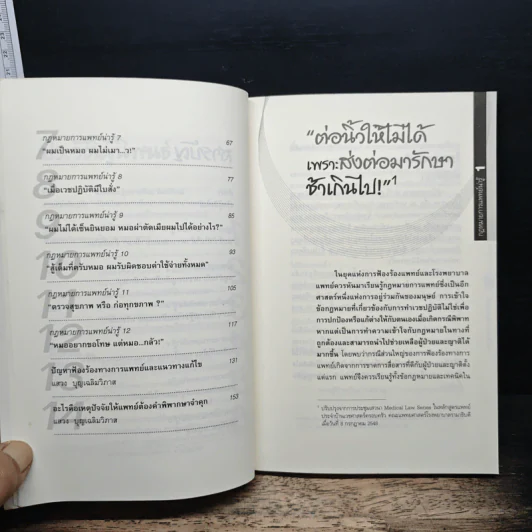 7
กฎหมายการแพทย์น่ารู้ 7
"ผมเป็นหมอ ผมไม่เมา...ว!" 67
8
กฎหมายการแพทย์น่ารู้ 8
"เมื่อเวชปฏิบัติมีใบสั่ง" 77
9
กฎหมายการแพทย์น่ารู้ 9
"ผมไม่ได้เซ็นยินยอม หมอผ่าตัดเมียผมไปได้อย่างไร?" 85
10
กฎหมายการแพทย์น่ารู้ 10
"สู้เต็มที่ครับหมอ ผมรับผิดชอบค่าใช้จ่ายทั้งหมด" 93
11
กฎหมายการแพทย์น่ารู้ 11
"ตรวจสุขภาพ หรือ ก่อทุกขภาพ ?" 105
12
กฎหมายการแพทย์น่ารู้ 12
"หมออยากขอโทษ แต่หมอ...กลัว!" 117
13
ปัญหาฟ้องร้องทางการแพทย์และแนวทางแก้ไข 131
แสวง บุญเฉลิมวิภาส
14
อะไรคือเหตุปัจจัยให้แพทย์ต้องคำพิพากษาจำคุก 153
แสวง บุญเฉลิมวิภาส
"ต่อนิ้วให้ไม่ได้
เพราะส่งต่อมารักษา
ช้าเกินไป!"1
กฎหมายการแพทย์น่ารู้ 1
ในยุคแห่งการฟ้องร้องแพทย์และโรงพยาบาล
แพทย์ควรหันมาเรียนรู้กฎหมายการแพทย์ซึ่งเป็นอีก
ศาสตร์หนึ่งแห่งการอยู่ร่วมกันของมนุษย์ การเข้าใจ
ข้อกฎหมายที่เกี่ยวข้องกับการทำเวชปฏิบัติไม่ใช่เพื่อ
การปกป้องหรือแก้ต่างให้กับตนเองเมื่อเกิดกรณีพิพาท
หากแต่เป็นการทำความเข้าใจกับกฎหมายในทางที่
ถูกต้องและสามารถนำไปช่วยเหลือผู้ป่วยและญาติได้
มากขึ้น โดยพบว่ากรณีส่วนใหญ่ของการฟ้องร้องทางการ
แพทย์เกิดจากการขาดการสื่อสารที่ดีกับผู้ป่วยและญาติตั้ง
แต่แรก แพทย์จึงควรเรียนรู้ทั้งข้อกฎหมายและเทคนิคใน
1 ปรับปรุงจากการประชุมเสวนา Medical Law Series ในหลักสูตรแพทย์
ประจำบ้านเวชศาสตร์ครอบครัว คณะแพทยศาสตร์โรงพยาบาลรามาธิบดี